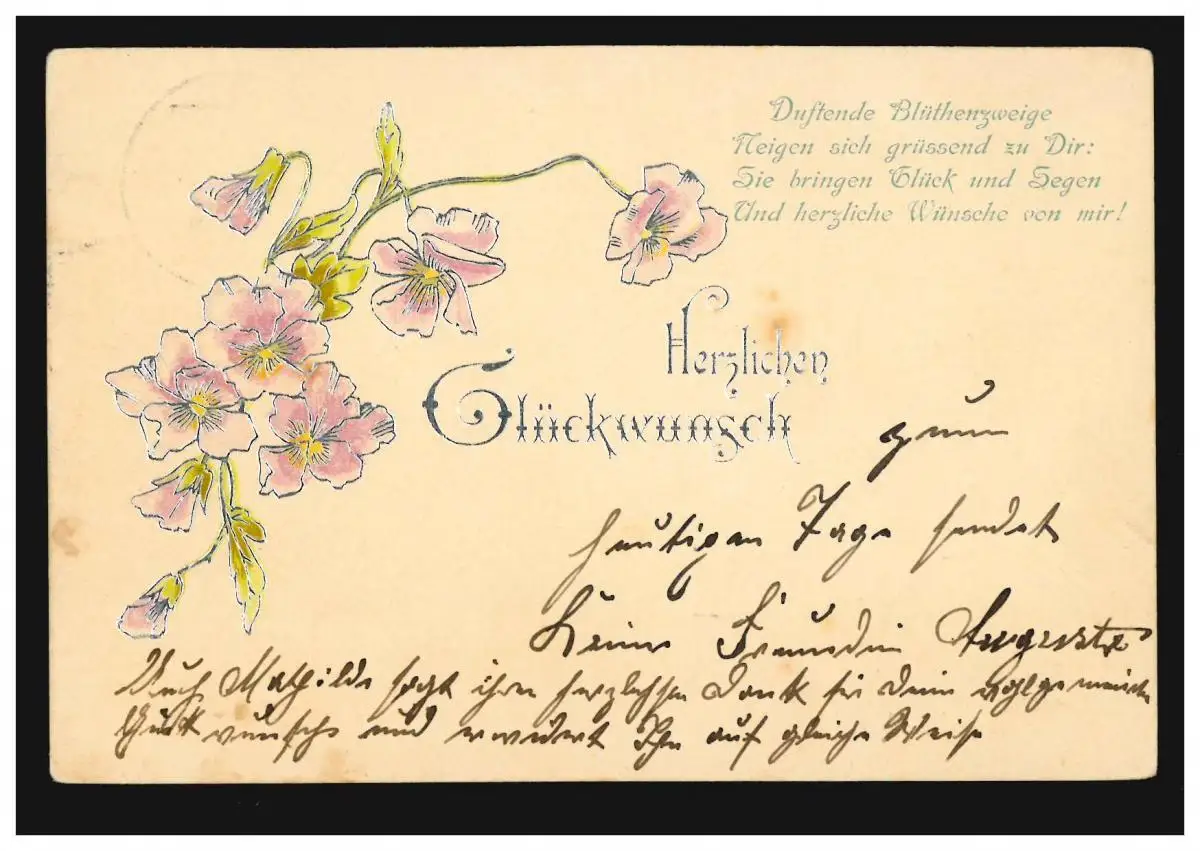 Duftende Blüthenzweige
Neigen sich grüssend zu Dir:
Sie bringen Glück und Segen
Und herzliche Wünsche von mir!
Herzlichen
Glückwunsch
zum
heutigen Tage sendet
Deine Freundin Auguste
Auch Mathilde sagt ihren herzlichsten Dank für Deine
Glückwünsche und erwidert Ihn auf gleiche Weise